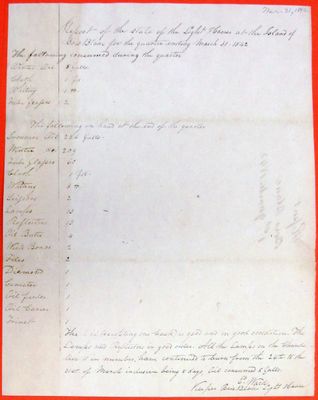 Mar. 31, 1842
Report of the state of the Light House at the Island of
Bois Blanc for the quarter ending March 31. 1842
The following consumed during the quarter
Winter Oil 8 galls
Cloth 1
Whiting 1
Tube glasses 2
The following on hand at the end of the quarter
Summer Oil galls
Winter do. 209
Tube Glasses 60
Cloth 1
Whiting 8
Scissors 2
Lamps 13
Reflectors 13
Oil Butts 4
Wick Boxes 2
Files 2
Diamond 1
1
Oil feeder 1
Oil Carrier 1
1
The Oil on hand is good and in good condition. The
Lamps and Reflectors in good order. All the Lamps on the
in number, have continued to burn from the 24th to the
31st of March inclusive being 8 days. Oil consumed 8 Galls.
Keeper Bois Blanc Light House